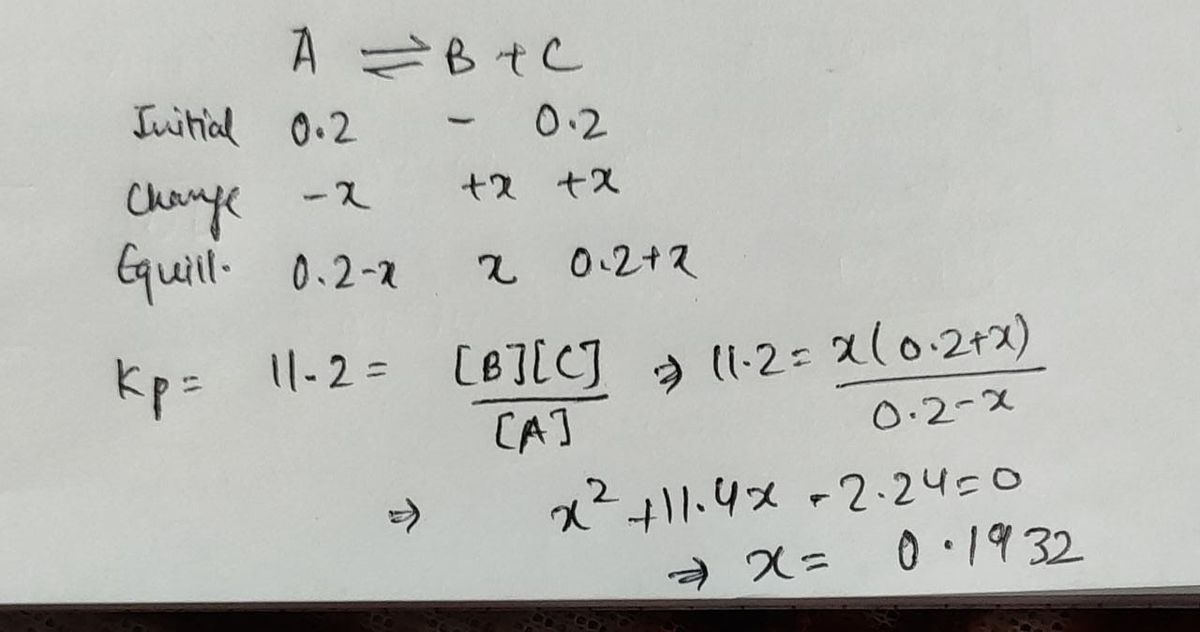 A ⇌ B + C
Initial 0.2 - 0.2
Change -x +x +x
Equill. 0.2-x x 0.2+x
Kp = 11.2 = [B][C] / [A] ⇒ 11.2 = x(0.2+x) / 0.2-x
⇒ x² + 11.4x - 2.24 = 0
⇒ x = 0.1932